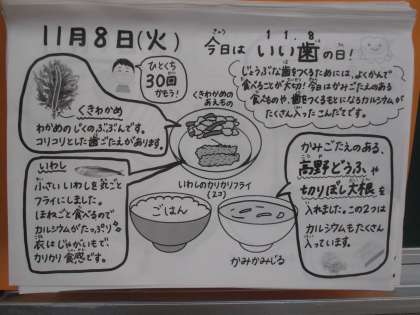 11月8日(火)
今日は いい歯の日!
きょう
11.8
は
ひとくち
30回
かもう!
じょうぶな歯をつくるためには、よくかんで
食べることが大切!今日はかみごたえのある
食べものや、歯をつくるもとになるカルシウムが
たくさん入ったこんだてです。
くきわかめ
わかめのじくのぶぶんです。
コリコリとした歯ごたえがあります。
くきわかめの
あえもの
いわし
小さいいわしを丸ごと
フライにしました。
ほねごと食べるので
カルシウムがたっぷり。
衣はじゃがいもで
カリカリ食感です。
いわしのカリカリフライ
(2コ)
ごはん
かみかみじる
かみごたえのある、
高野どうふや
切りぼし大根を
入れました。この2つは
カルシウムもたくさん
入っています。